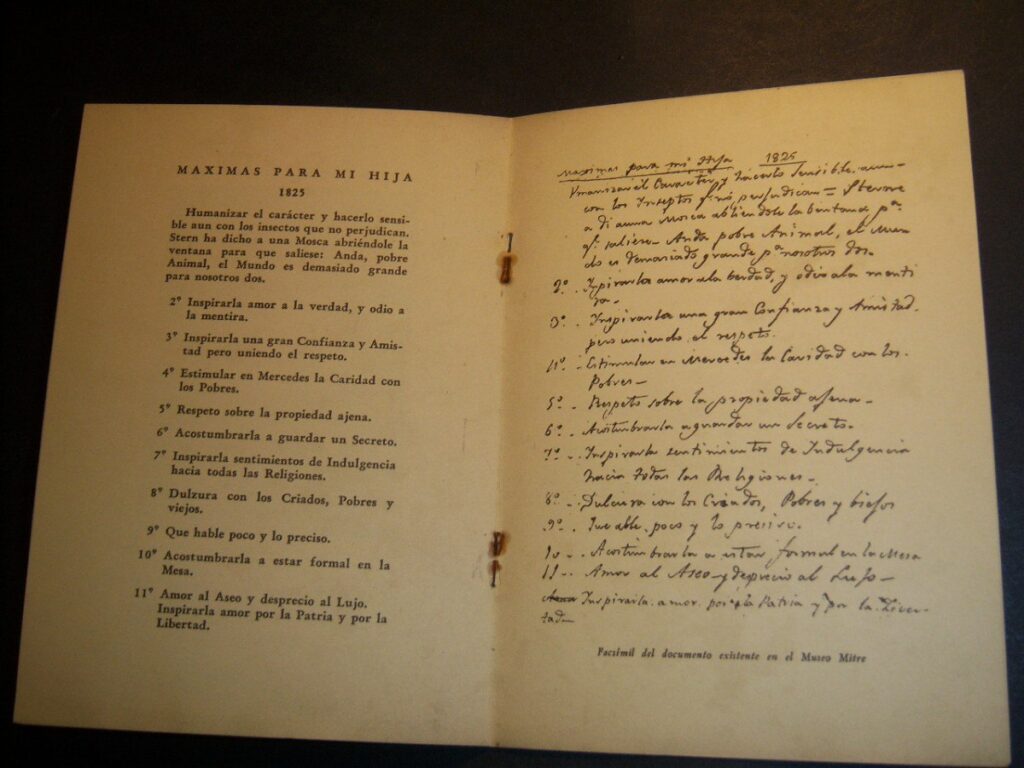 MAXIMAS PARA MI HIJA
1825
Humanizar el carácter y hacerlo sensi-
ble aun con los insectos que no perjudican.
Stern ha dicho a una Mosca abriéndole la
ventana para que saliese: Anda, pobre
Animal, el Mundo es demasiado grande
para nosotros dos.
2º Inspirarla amor a la verdad, y odio a
la mentira.
3º Inspirarla una gran Confianza y Amis-
tad pero uniendo el respeto.
4º Estimular en Mercedes la Caridad con
los Pobres.
5º Respeto sobre la propiedad ajena.
6º Acostumbrarla a guardar un Secreto.
7º Inspirarla sentimientos de Indulgencia
hacia todas las Religiones.
8º Dulzura con los Criados, Pobres y
viejos.
9º Que hable poco y lo preciso.
10º Acostumbrarla a estar formal en la
Mesa.
11º Amor al Aseo y desprecio al Lujo.
Inspirarla amor por la Patria y por la
Libertad.
Maximas para mi Hija 1825
Umanizar el Caracter y hacerlo sensible aun
con los Inseptos q. no perjudican = Sterne
a di a una Mosca abriendole la bentana pª
qº saliese - Anda pobre Animal, el Mun
do es demasiado grande pª nosotros dos.
2º . Ispirarla amor ala berdad, y odio ala menti
ra -
3º . Inspirarla una gran Confianza y Amistad
pero uniendo el respeto.
4º . Estimular en Mercedes la Caridad con los
Pobres -
5º . Respeto sobre la propiedad agena -
6º . Acostumbrarla a guardar un Secreto.
7º . Inspirarla sentimientos de Indulgencia
hacia todas las Religiones -
8º . Dulzura con los Criados, Pobres y biejos
9º . poco y lo preciso.
10 . Acostumbrarla a estar formal en la Mesa
11 . Amor al Aseo y desprecio al Lujo -
Inspirarla amor por la Patria y por la Liver-
tad -
Facsímil del documento existente en el Museo Mitre